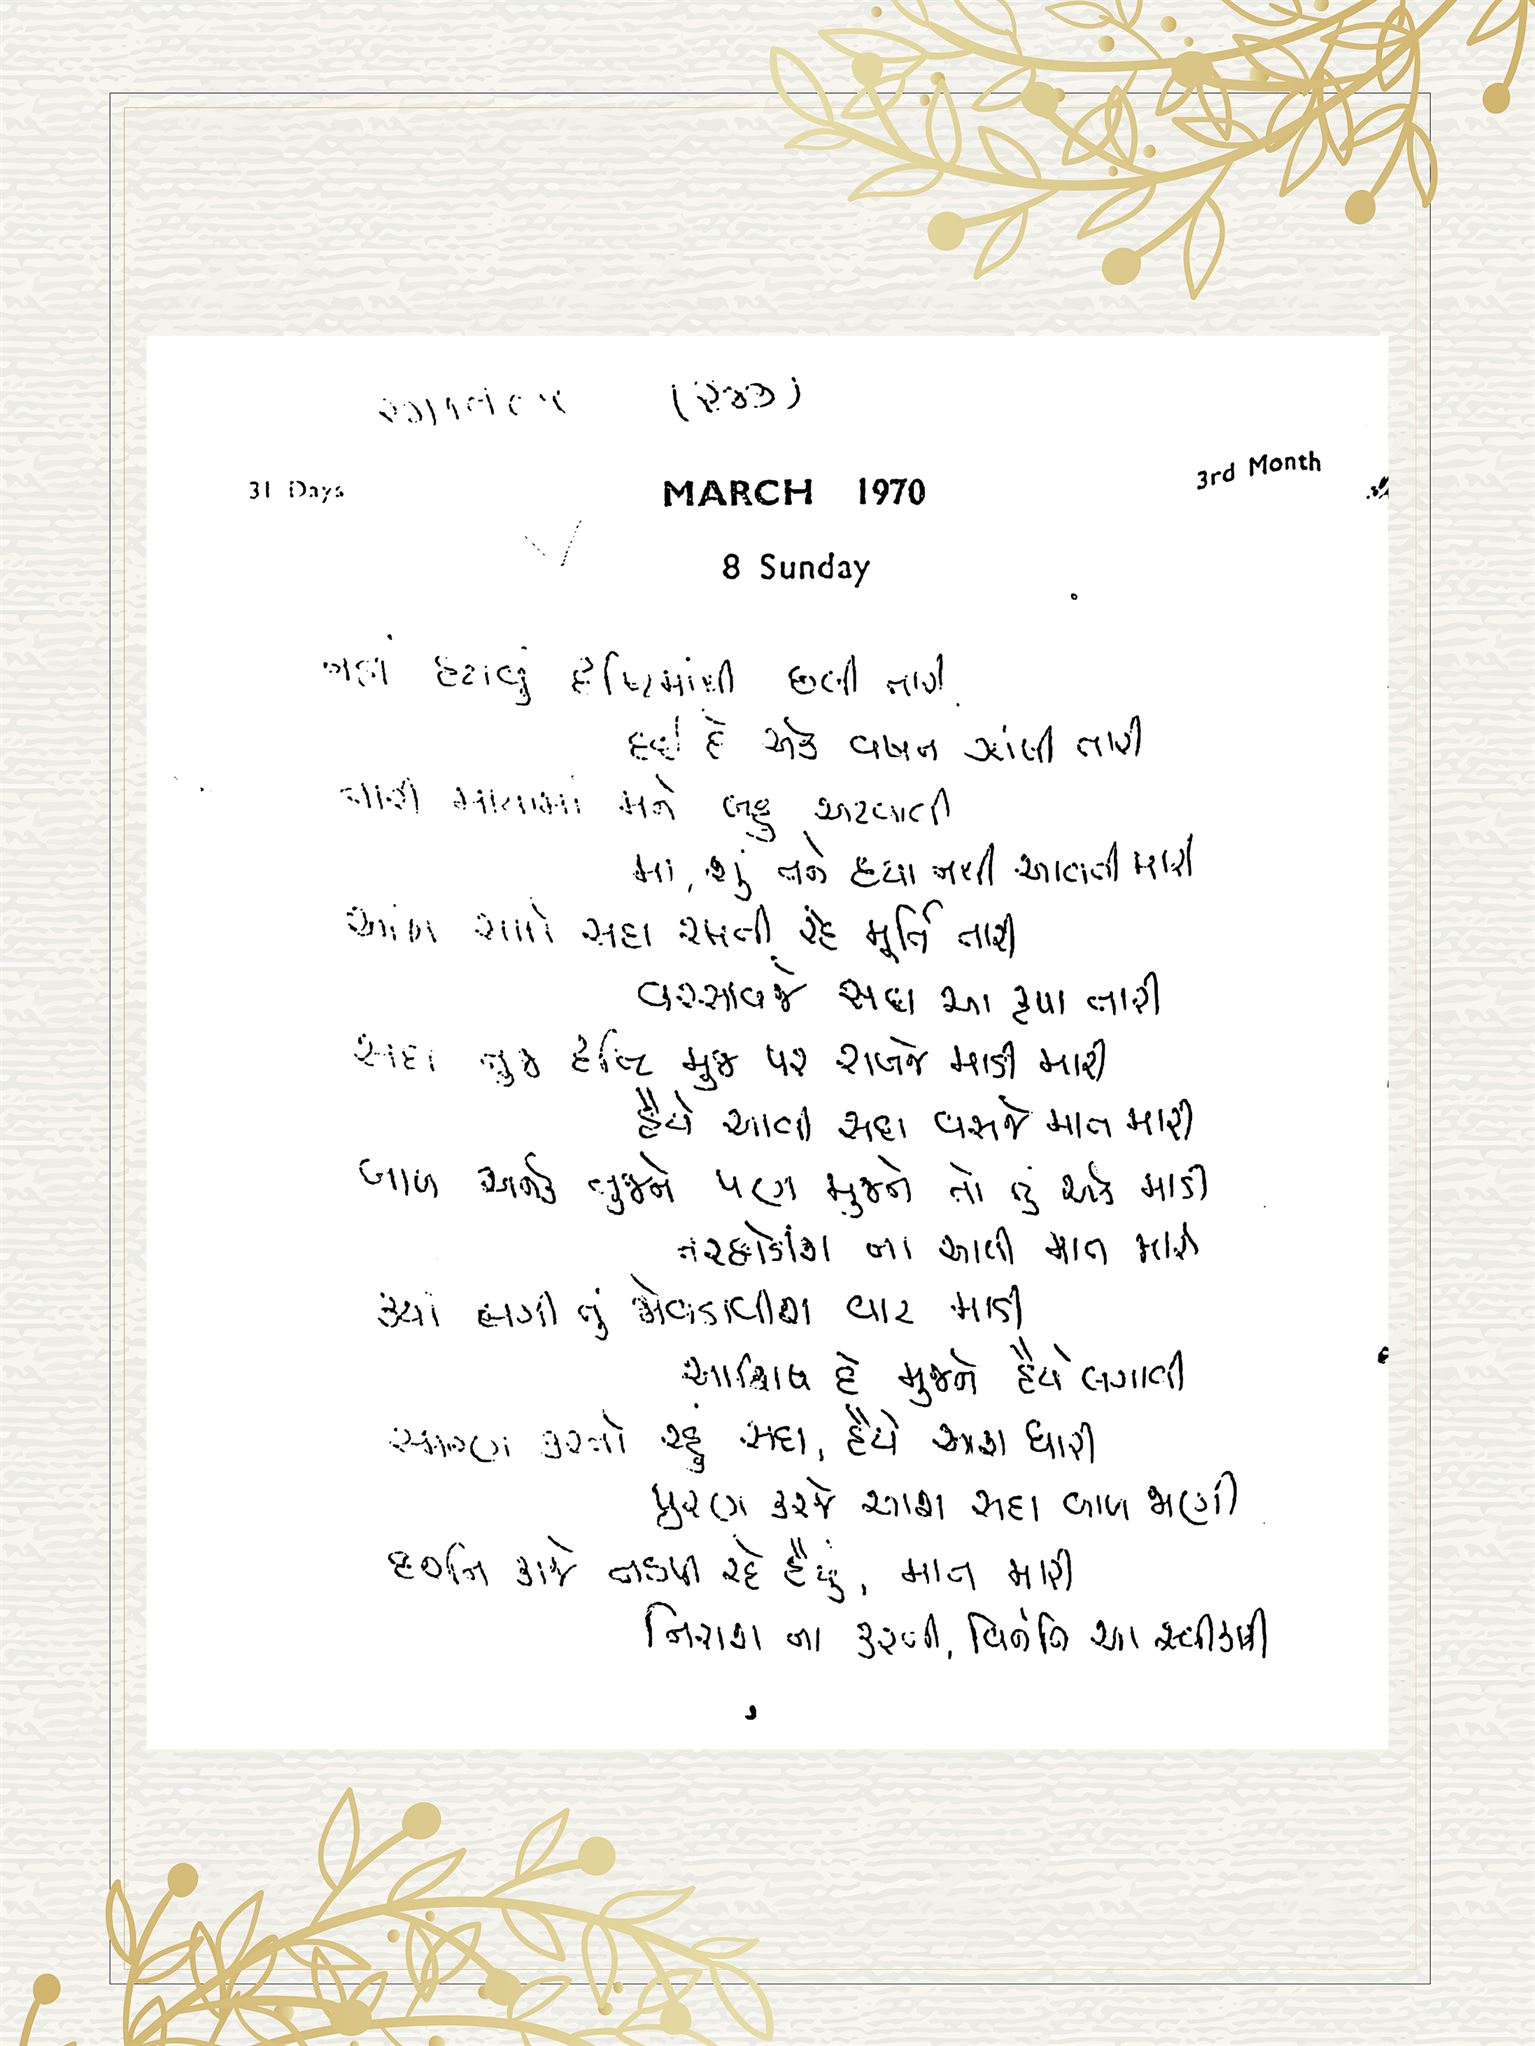 (રજક)
31 Days MARCH 1970 3rd Month
8 Sunday
નહીં હટાવું દૃષ્ટિમાંથી છબી તારી
દર્શ દે એક વખત ઝાંખી તારી
તારી માયામાં મને બહુ અટવાવી
માં, શું તને દયા નથી આવતી મારી
આંખ સામે સદા રમતી રહે મૂર્તિ તારી
વરસાવજે સદા આ કૃપા તારી
સદા તુજ દૃષ્ટિ મુજ પર રાખજે માડી મારી
હૈયે આવી સદા વસજે માત મારી
બાળ અનેક તુજને પણ મુજને તો તું એક માડી
તરછોડીશ ના આવી માત મારી
ક્યાં લગી તું લેવડાવીશ વાટ માડી
આશિષ દે મુજને હૈયે લગાવી
સ્મરણ કરતો રહું સદા, હૈયે આશ ધારી
પુરણ કરજે આશ સદા બાળ ભણી
દર્શન કાજે તડપી રહે હૈયું, માત મારી
નિરાશ ના કરતી, વિનંતિ આ સ્વીકારી